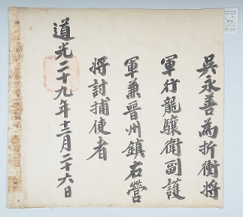 吳永善爲折衝將
軍行龍驤衛副護
軍兼晉州鎮右營
將討捕使者
道光二十九年十二月二十六日